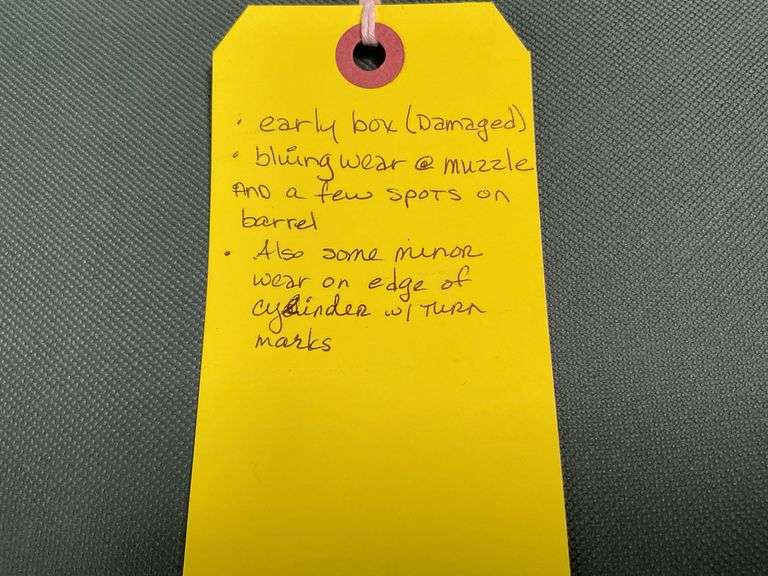 • early box (Damaged)
• bluing wear @ muzzle
AND a few spots on
barrel
• Also some minor
wear on edge of
cylinder w/ turn
marks